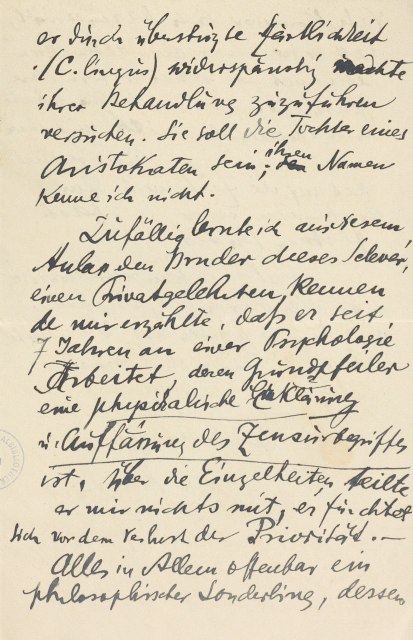 er durch überstürzte Zärtlichkeit
(C. lingus) widerspänstig machte
ihrer Behandlung zuzuführen
versuchen. Sie soll die Tochter eines
Aristokraten sein, ihren Namen
kenne ich nicht.
Zufällig lernte ich aus diesem
Anlaß den Bruder dieses
einen Privatgelehrten kennen
de mir erzählte, daß er seit
7 Jahren an einer Psychologie
Arbeitet, deren Grundpfeiler
eine physikalische Erklärung
u. Auffassung des Zensurbegriffes
ist, über die Einzelheiten teilte
er mir nichts mit, er fürchtet
sich vor dem Verlust der Priorität. –
Alles in Allem offenbar ein
philosophischer Sonderling, dessen